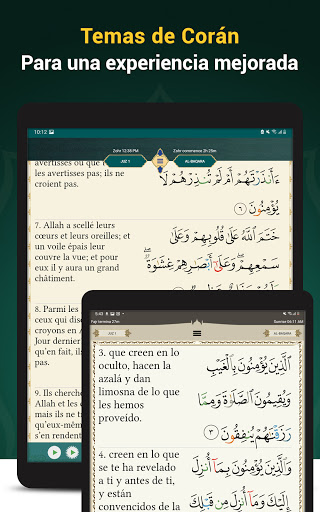 Temas de Corán
Para una experiencia mejorada
10:12
Zohr 12:38 PM
Zohr commence 2h 25m
JUZ 1
AL-BAQARA
avertisses ou que tu ne
les avertisses pas; ils ne
croient pas.
ءَأَنذَرْتَهُمْ أَمْ لَمْ تُنذِرْهُمْ لَا
يُؤْمِنُونَ ٦
7. Allah a scellé leurs
cœurs et leurs oreilles; et
un voile épais leur
couvre la vue; et pour
eux il y aura un grand
châtiment.
خَتَمَ ٱللَّهُ عَلَىٰ قُلُوبِهِمْ وَعَلَىٰ
سَمْعِهِمْ ۖ وَعَلَىٰٓ أَبْصَٰرِهِمْ غِشَٰوَةٌ ۖ
8. Parmi les
ceux qui disent
croyons en
Jour dernier
qu'en fait, ils
9. Ils cherchent
Allah et les
mais ils ne
eux-mêmes,
s'en rendent
5:43
Fajr termine 27m
Sunrise 06:11 AM
JUZ 1
AL-BAQARA
3. que creen en lo
oculto, hacen la
azalá y dan
limosna de lo que
les hemos
proveído.
ٱلَّذِينَ يُؤْمِنُونَ بِٱلْغَيْبِ
وَيُقِيمُونَ ٱلصَّلَوٰةَ وَمِمَّا
رَزَقْنَٰهُمْ يُنفِقُونَ ٣
4. creen en lo
que se te ha revelado
a ti y antes de
ti, y están
convencidos de la
وَٱلَّذِينَ يُؤْمِنُونَ بِمَآ أُنزِلَ
إِلَيْكَ وَمَآ أُنزِلَ مِن قَبْلِكَ